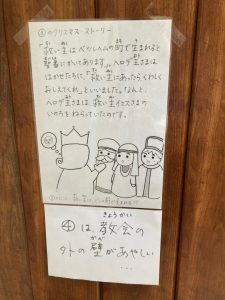 ③のクリスマス・ストーリー
「救い主はベツレヘムの町で生まれると
聖書にかいてあります。」ヘロデ王さまは
はかせたちに、「救い主にあったら、くわしく
おしえてくれ」といいました。なんと、
ヘロデ王さまは、救い主イエスさまの
いのちをねらっていたのです。
きょうかい
④は、教会の
かべ
外の壁があやしい
…